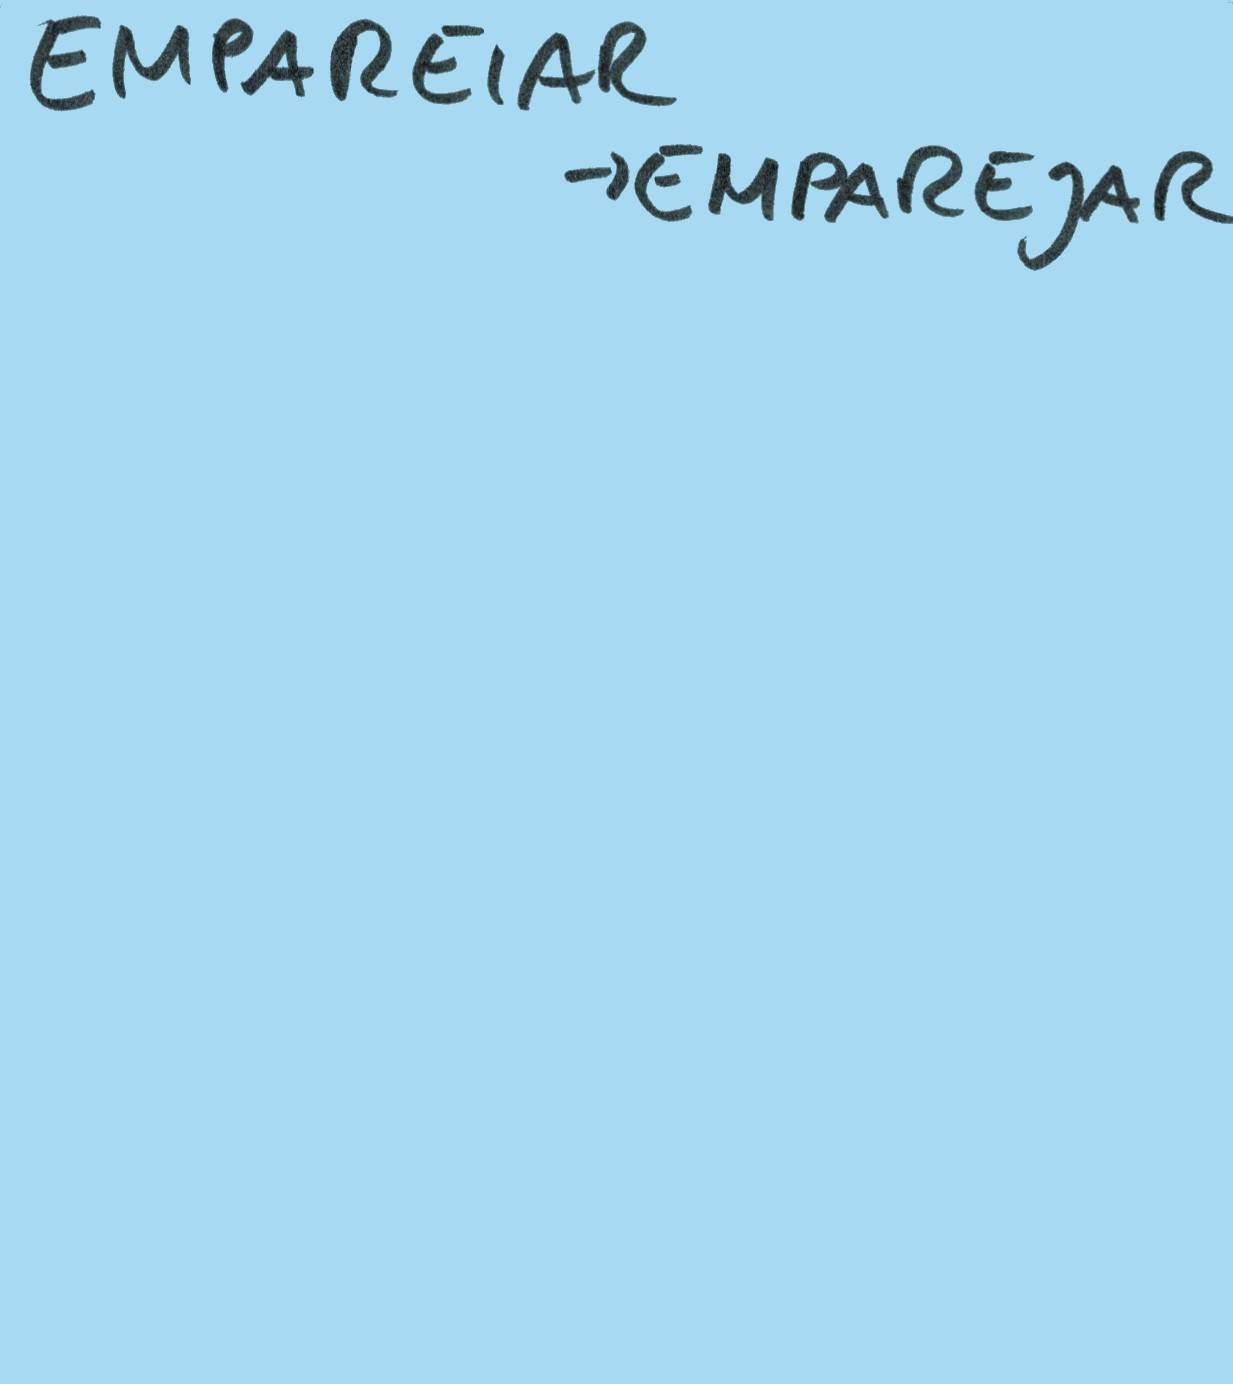 EMPAREIAR
→EMPAREJAR